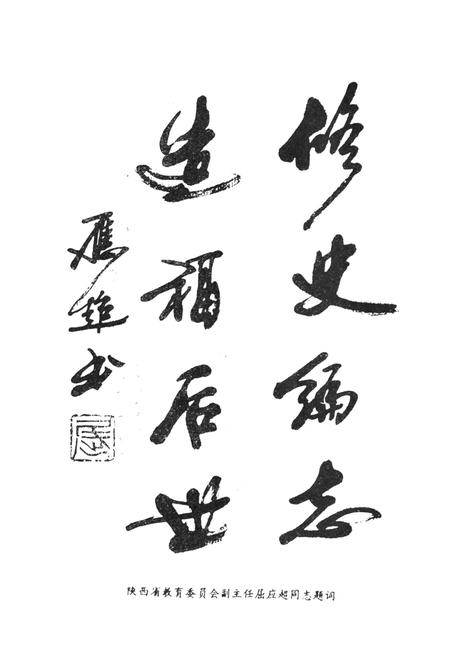 修史编志
造福后世
應超书
屈
陕西省教育委员会副主任屈应超同志题词